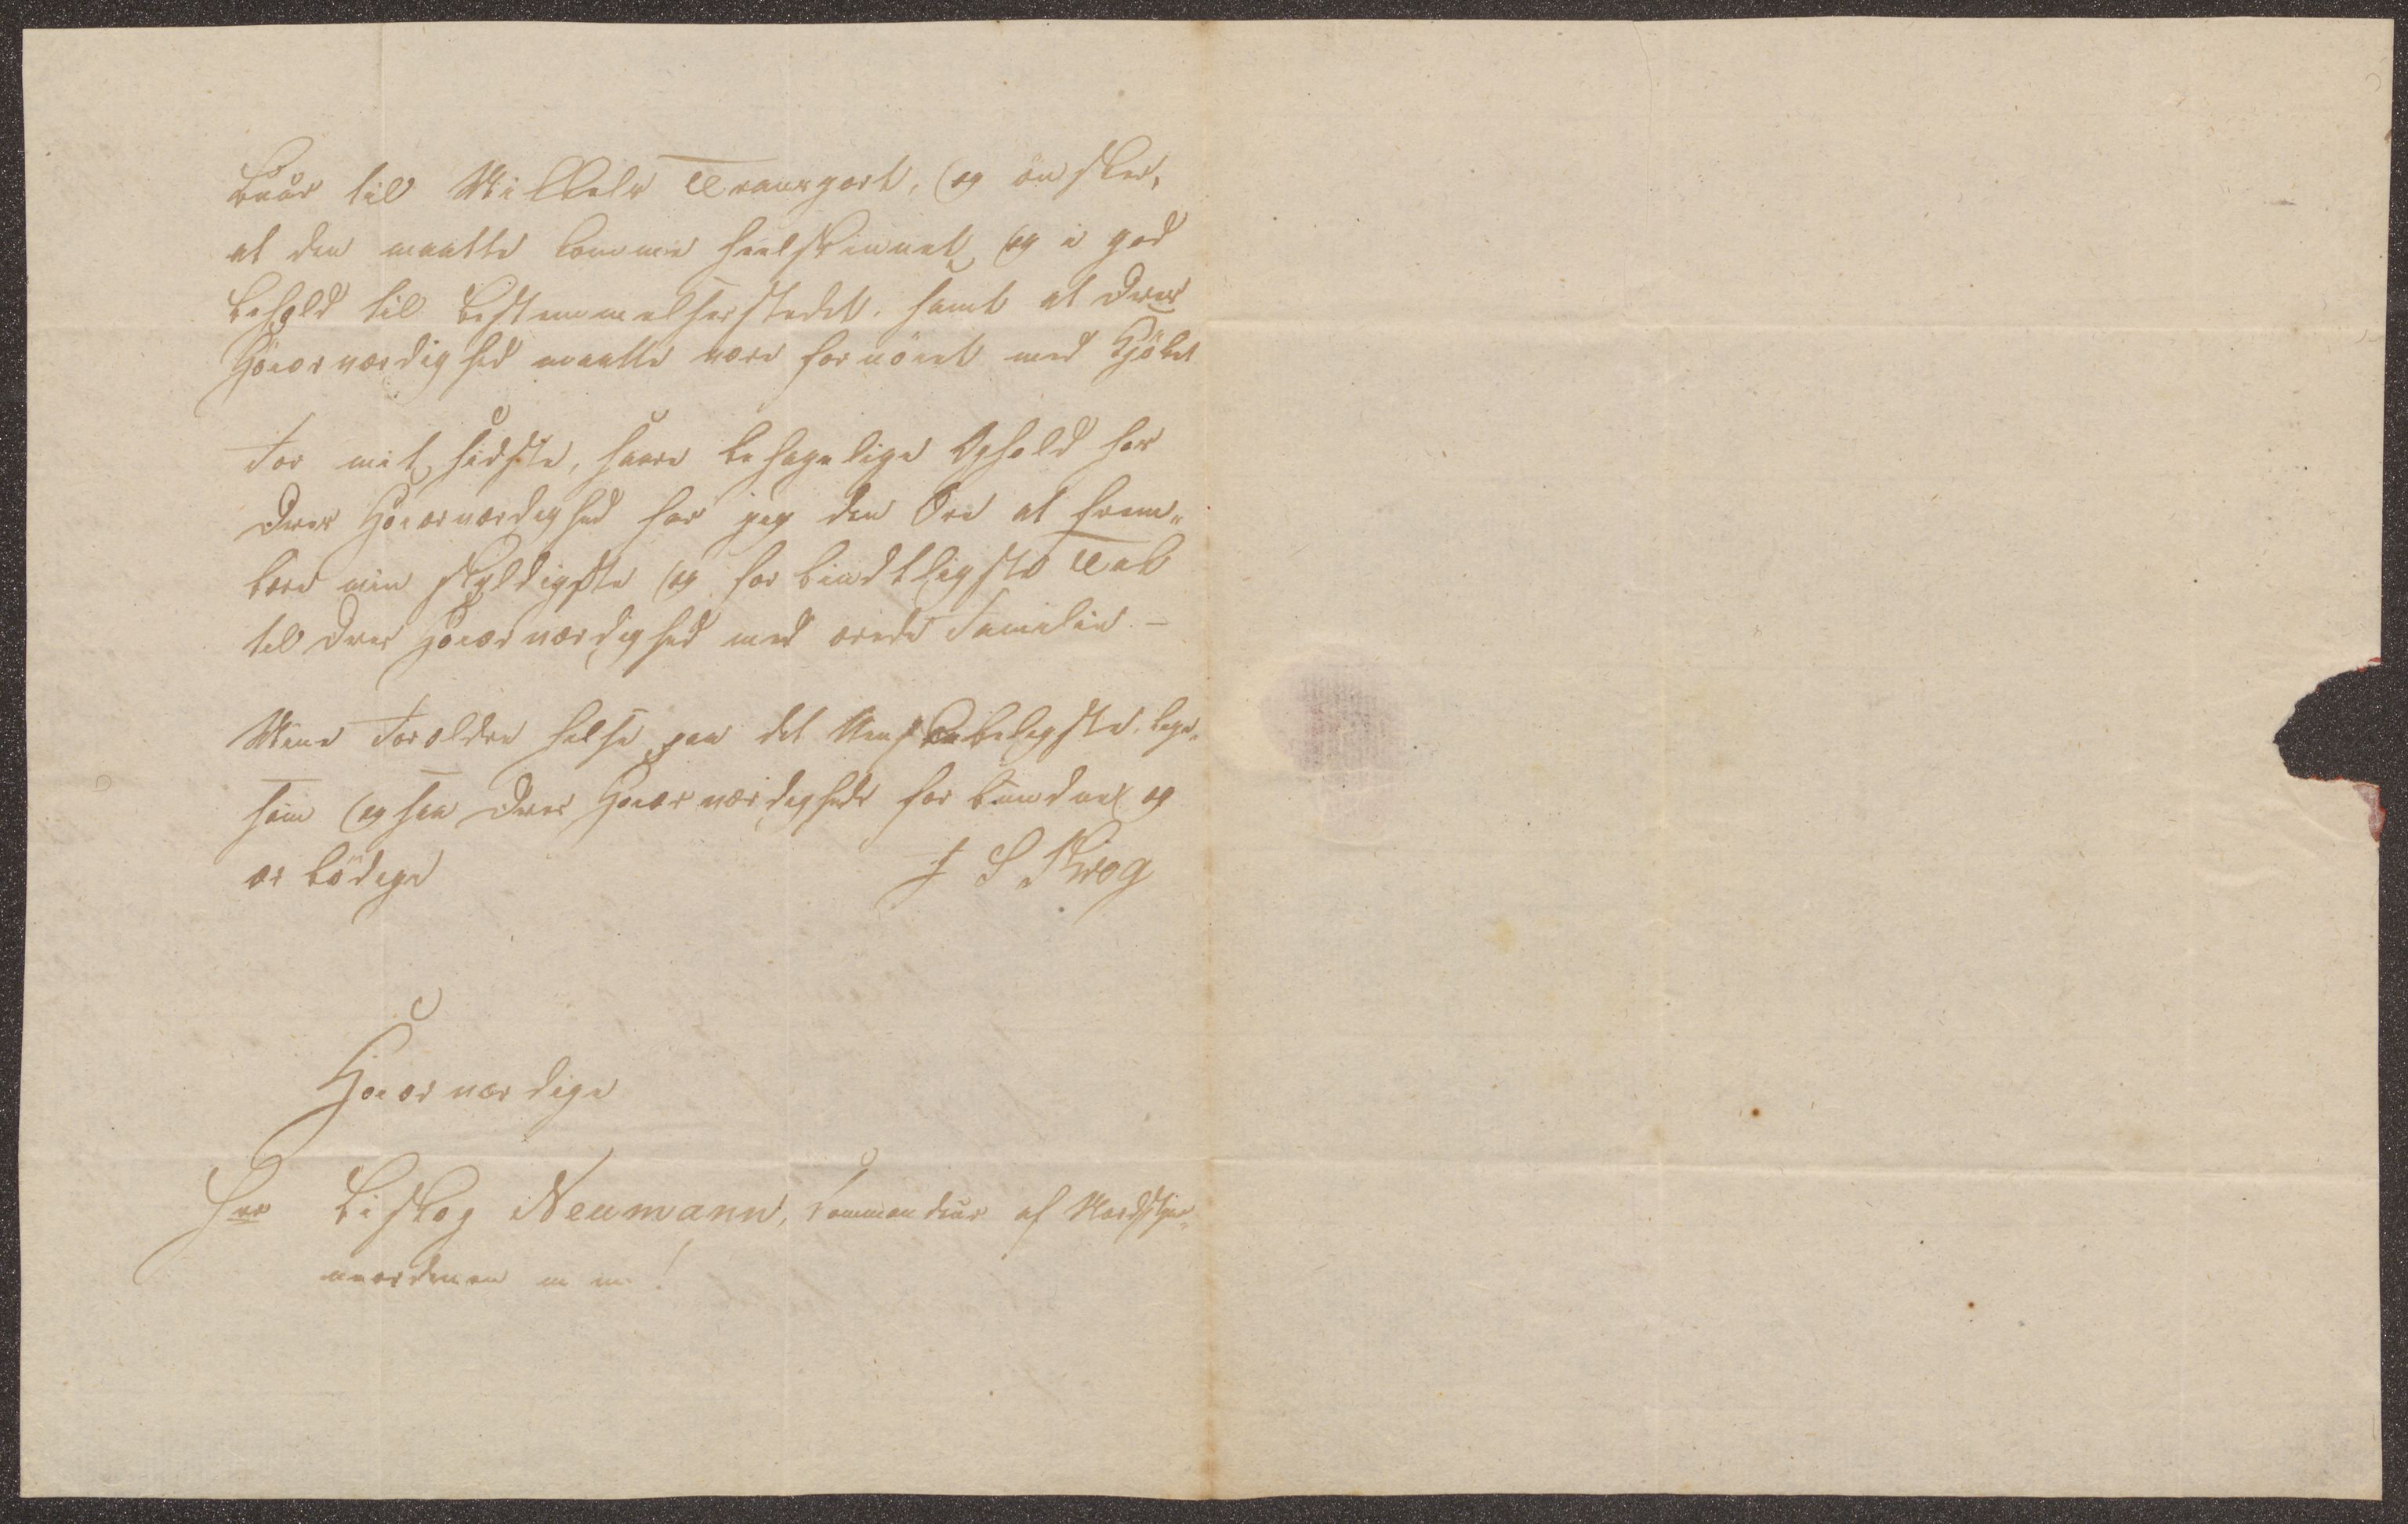 til Mikkels Transport, og önsker,
at den maatte komme heelskinnet og i god
Behold til Bestemmelsesstedet, samt at Deres
Höiærværdighed maatte være fornöiet med Kjöbet
For mit sidste, saare behagelige Ophold hos
Deres Höiærværdighed har jeg den Ære at frem„
bære min skyldigste og forbindtligste Tak
til Deres Höiærværdighed med ærede Familie –
Mine Forældre hilse paa det Venskabeligste, lige„
som ogsaa Deres Höiærværdigheds forbundne og
ærbödige J S Krog
Höiærværdige
Herr Biskop Neumann, Commandeur af Nordstjer„
neordenen m m!